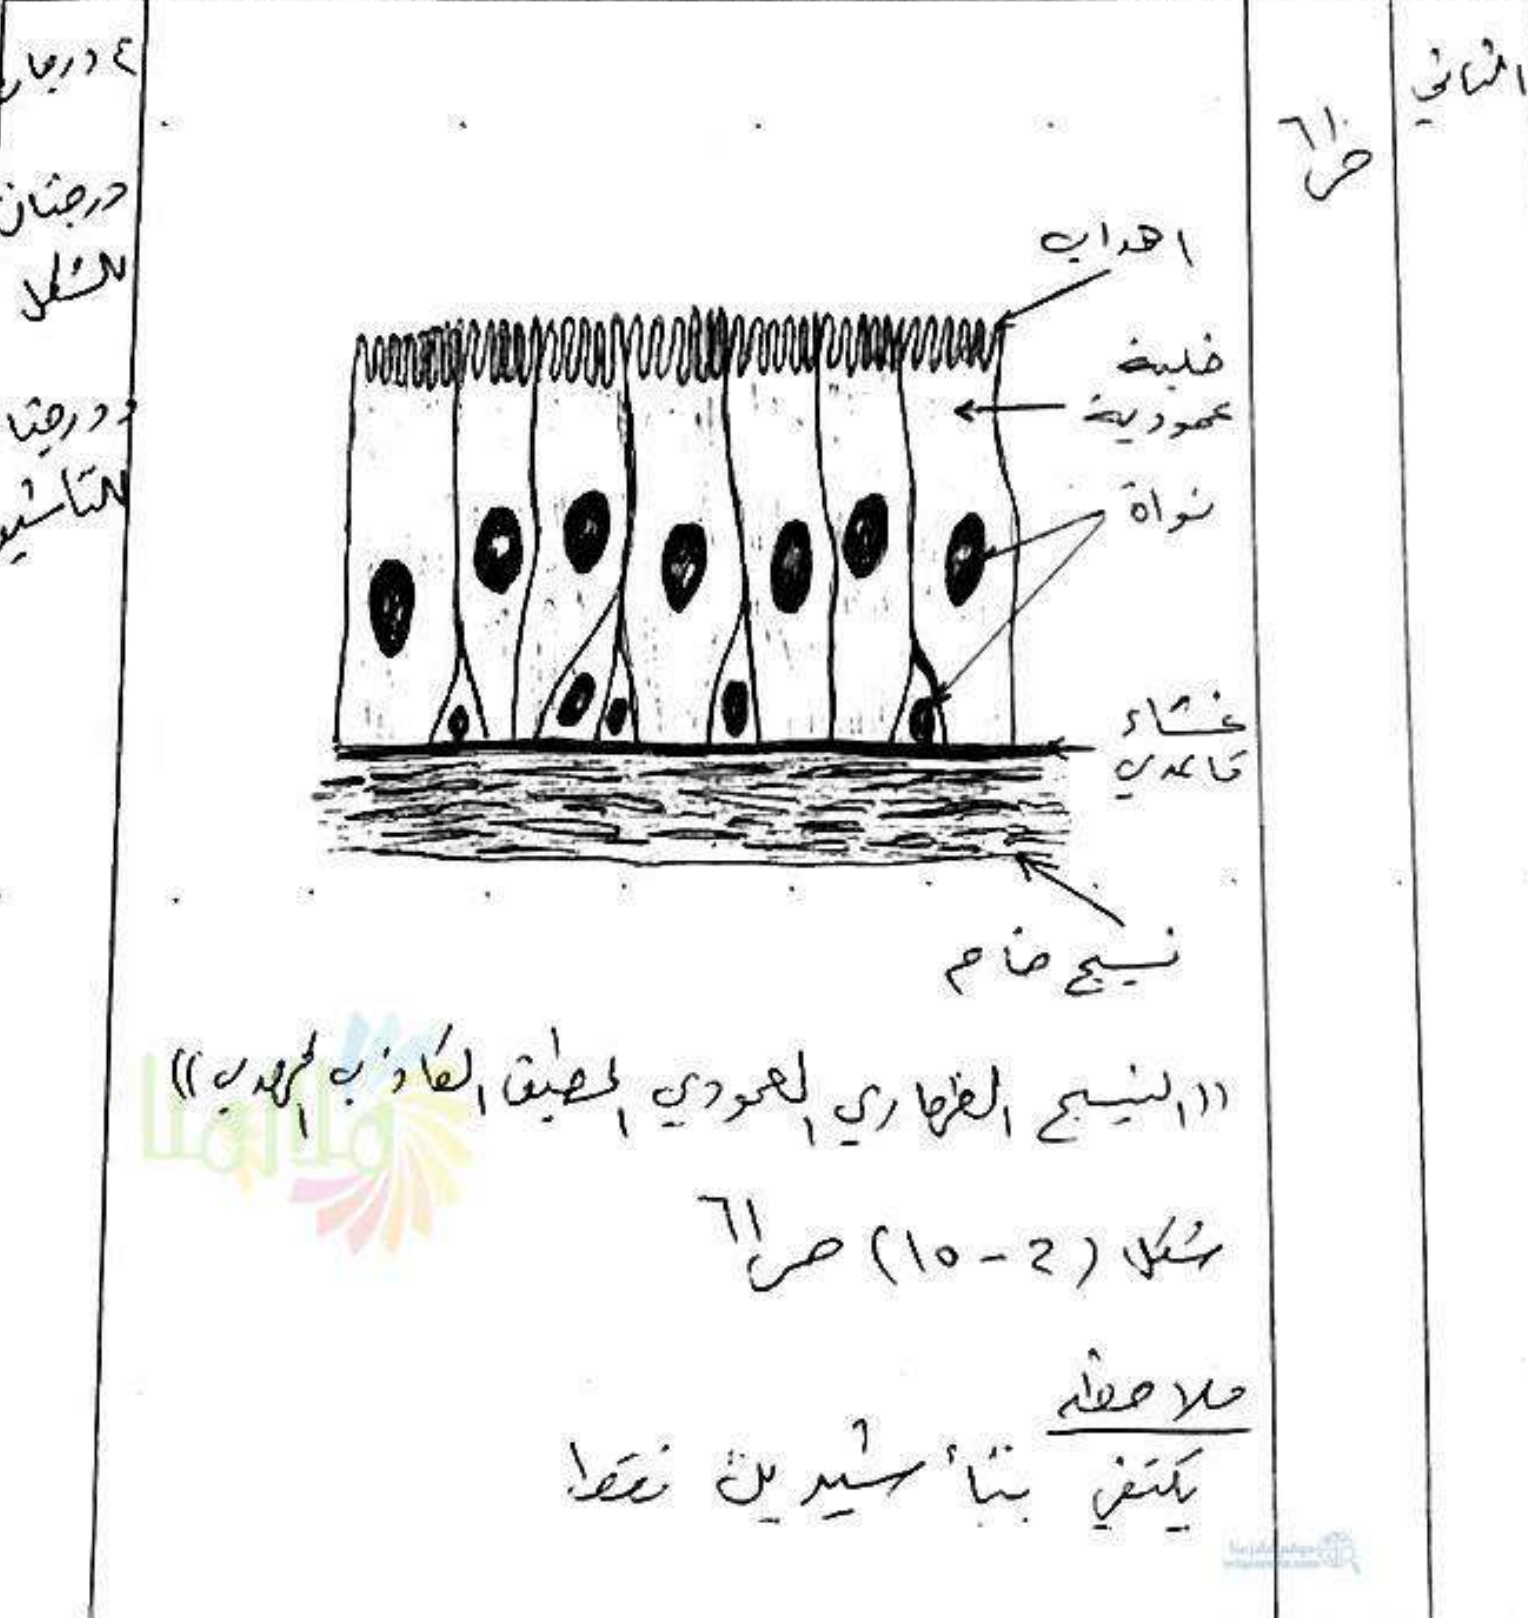 الثاني
ص٦١
٤ درجات
درجتان
للشكل
ودرجتا
للتاشير
اهداب
خلية
عمودية
نواة
غشاء
قاعدي
نسيج ضام
((النسيج الظهاري العمودي المطبق الكاذب المهدب))
شكل (2-١٥) ص٦١
ملاحظة
يكتفى بتأشيرين فقط
ملازمنا